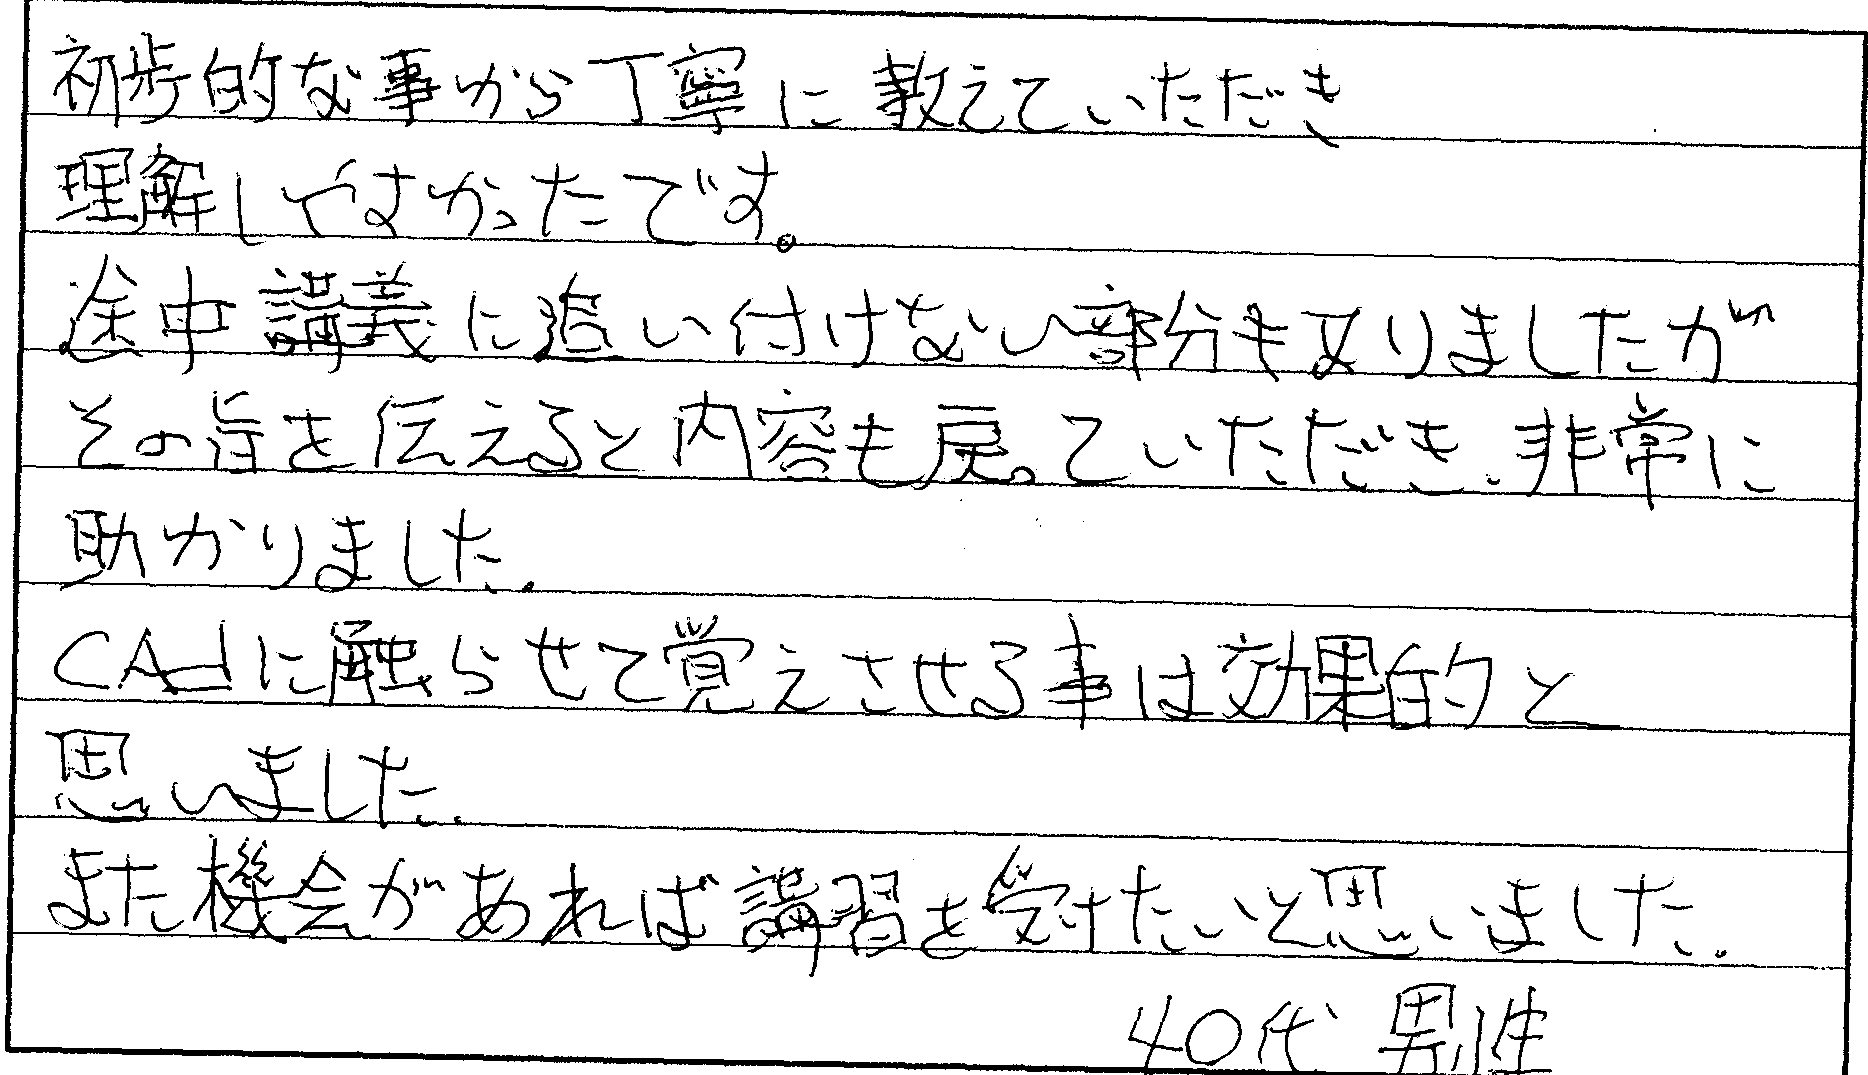 初歩的な事から丁寧に教えていただき
理解しやすかったです。
途中講義に追い付けない部分も又りましたが
その旨を伝えると内容も戻っていただき、非常に
助かりました。
CAdに触らせて覚えさせる事は効果的と
思いました。
また機会があれば講習を受けたいと思いました。
40代 男性